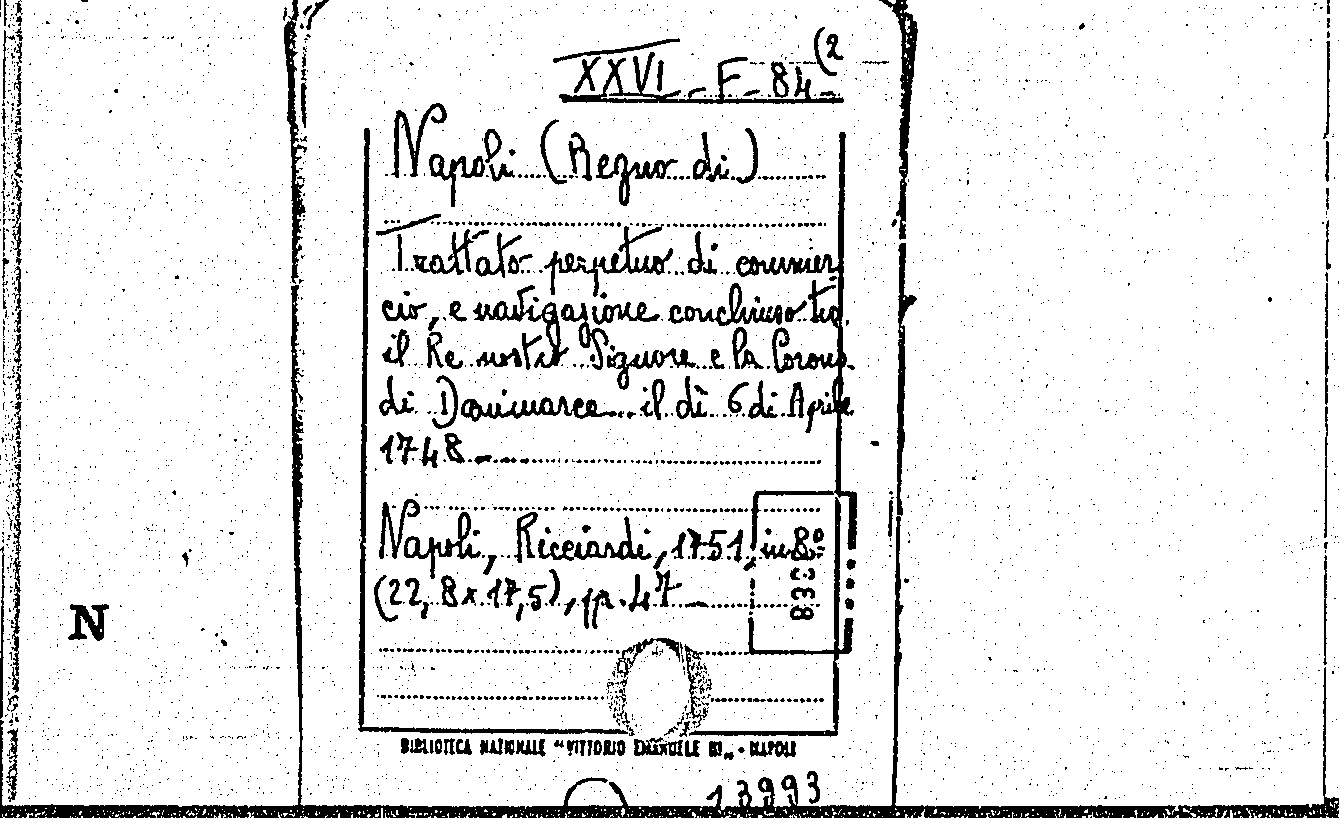 XXVI - F - 84 (2
Napoli (Regno di)
Trattato perpetuo di commer-
cio, e navigazione conchiuso tra
il Re nostro Signore e la Corona
di Danimarca... il dì 6 di Aprile
1748 -
Napoli, Ricciardi, 1751, in 8º
(22,8 x 17,5), pp. 47 -
N
BIBLIOTECA NAZIONALE "VITTORIO EMANUELE III„ - NAPOLI
13993